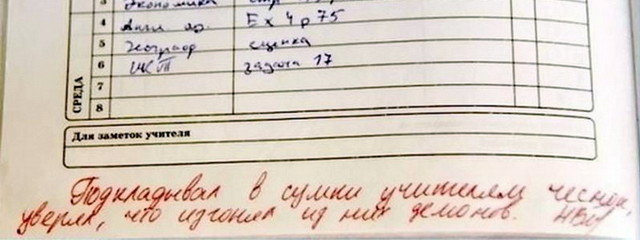 3 Экономика стр
4 Англ яз. Ex 4 p 75
5 Географ сценка
6 ИКТ задача 17
7
8
СРЕДА
Для заметок учителя
Подкладывал в сумки учителям чеснок,
уверял, что изгонял из них демонов.